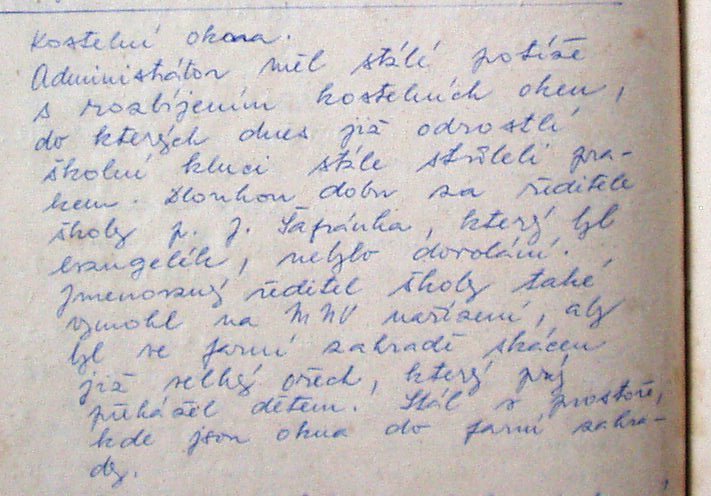 Kostelní okna.
Administrátor měl stálé potíže
s rozbíjením kostelních oken,
do kterých dnes již odrostlí
školní kluci stále stříleli pra-
kem. Dlouhou dobu za ředitele
školy p. J. Šafránka, který byl
evangelík, nebylo dovolání.
Jmenovaný ředitel školy také
vymohl na MNV nařízení, aby
byl ve farní zahradě skácen
již velký ořech, který prý
překážel dětem. Stál v prostoře,
kde jsou okna do farní zahra-
dy.